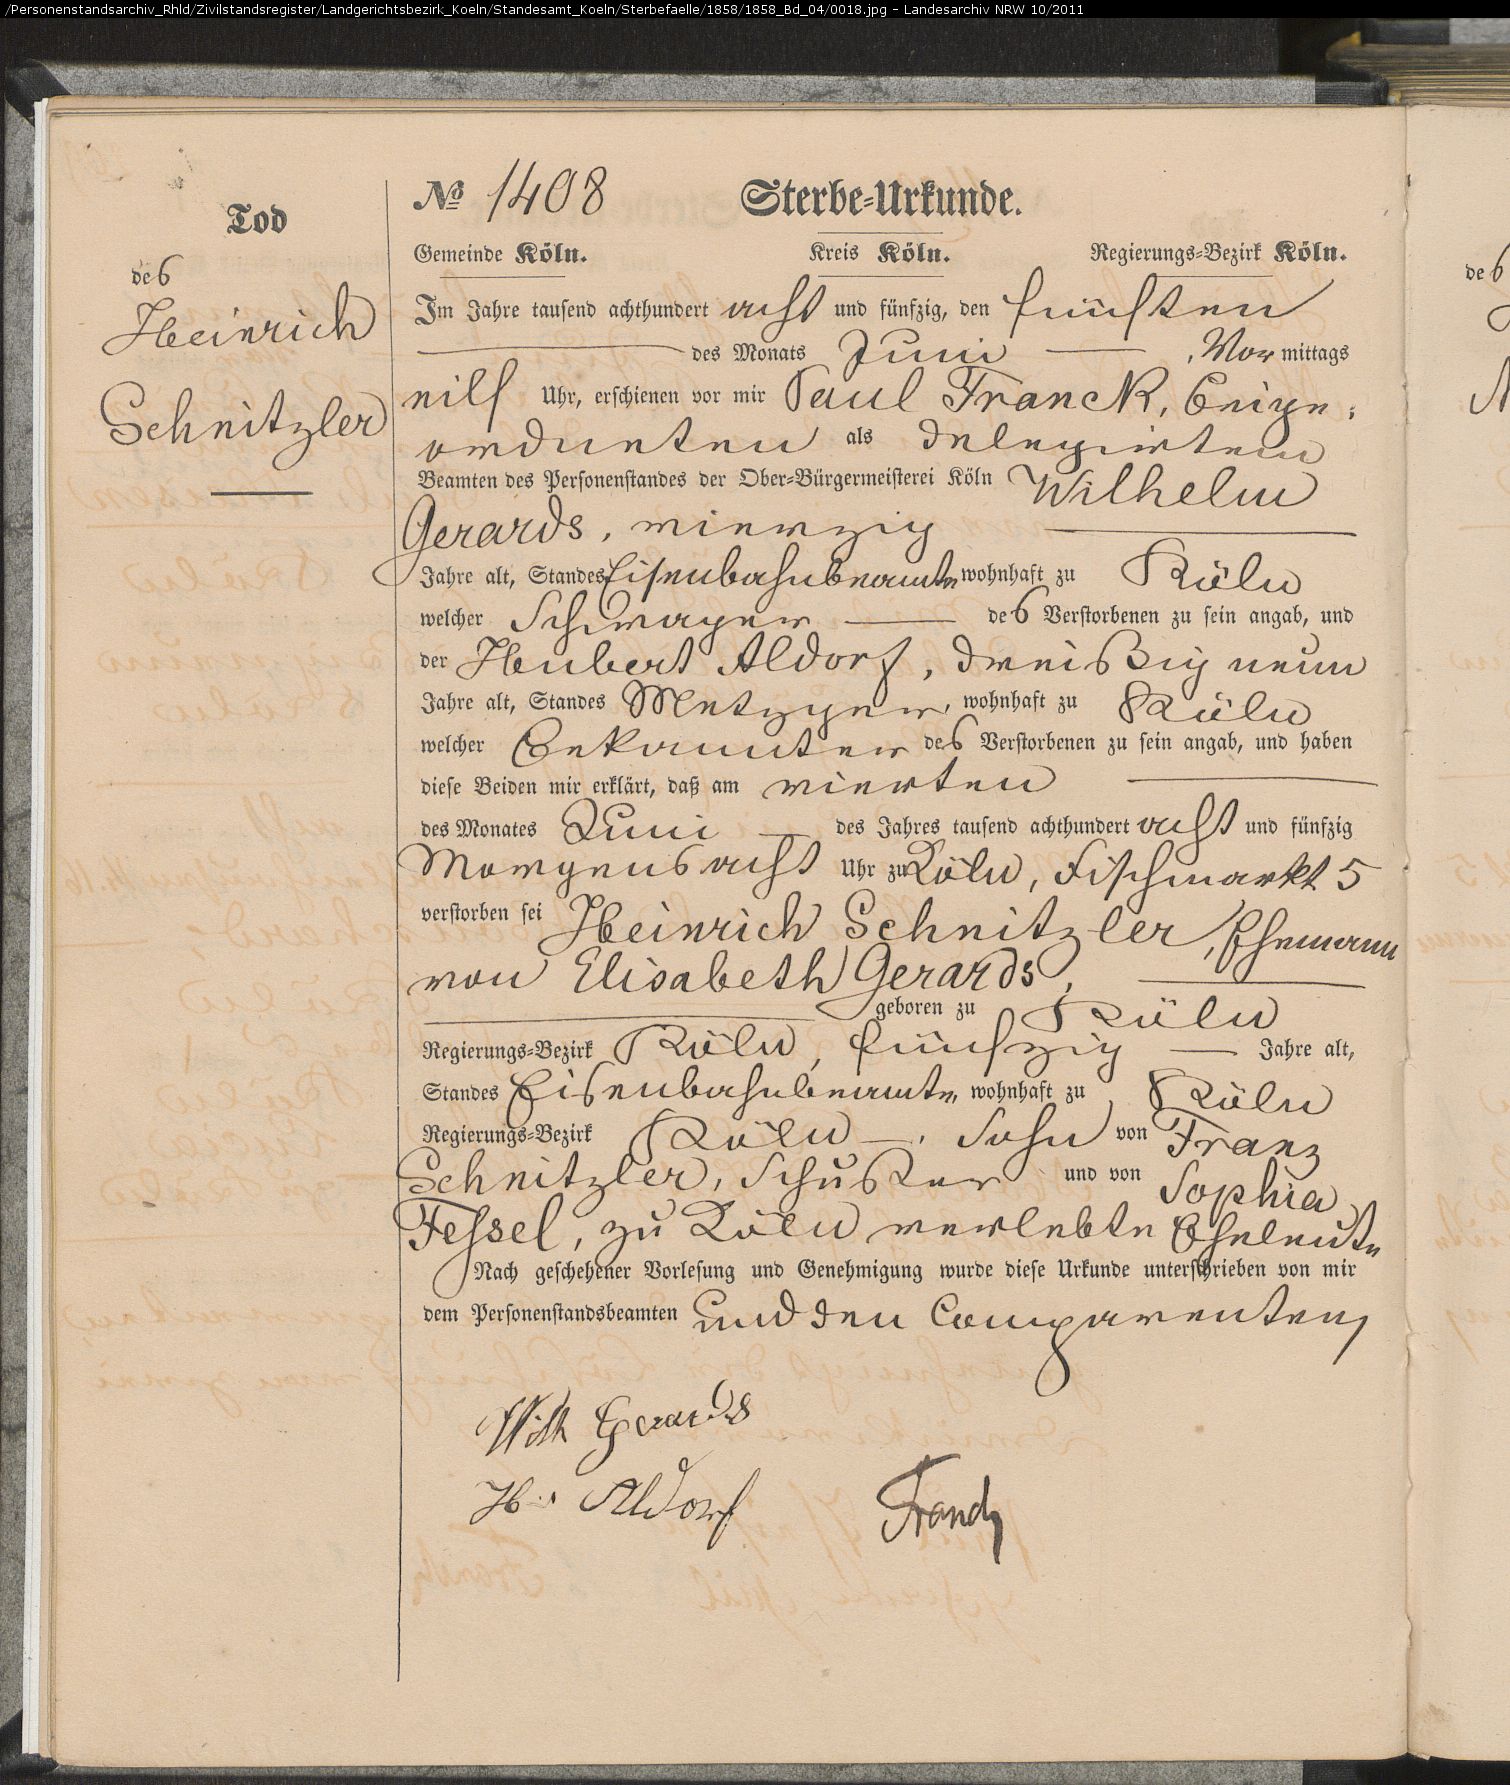 /Personenstandsarchiv_Rhld/Zivilstandsregister/Landgerichtsbezirk_Koeln/Standesamt_Koeln/Sterbefaelle/1858/1858_Bd_04/0018.jpg - Landesarchiv NRW 10/2011
Tod
des
Heinrich
Schnitzler
No 1408 Sterbe-Urkunde.
Gemeinde Köln. Kreis Köln. Regierungs-Bezirk Köln.
Im Jahre tausend achthundert acht und fünfzig, den fünften
des Monats Juni, Vormittags
eilf Uhr, erschienen vor mir Paul Franck, Beige-
ordneten als delegirtem
Beamten des Personenstandes der Ober-Bürgermeisterei Köln Wilhelm
Gerards, vierzig
Jahre alt, Standes Eisenbahnbeamte wohnhaft zu Köln
welcher Schwager des Verstorbenen zu sein angab, und
der Hubert Aldorf, dreißig neun
Jahre alt, Standes Metzger, wohnhaft zu Köln
welcher Bekannter des Verstorbenen zu sein angab, und haben
diese Beiden mir erklärt, daß am vierten
des Monates Juni des Jahres tausend achthundert acht und fünfzig
Morgens acht Uhr zu Köln, Fischmarkt 5
verstorben sei Heinrich Schnitzler, Ehemann
von Elisabeth Gerards,
geboren zu Köln
Regierungs-Bezirk Köln, fünfzig Jahre alt,
Standes Eisenbahnbeamte, wohnhaft zu Köln
Regierungs-Bezirk Köln, Sohn von Franz
Schnitzler, Schuster und von Sophia
Fessel, zu Köln verlebte Eheleute
Nach geschehener Vorlesung und Genehmigung wurde diese Urkunde unterschrieben von mir
dem Personenstandsbeamten und den Comparenten,
Wilh Gerards
Hu Aldorf Franck
des